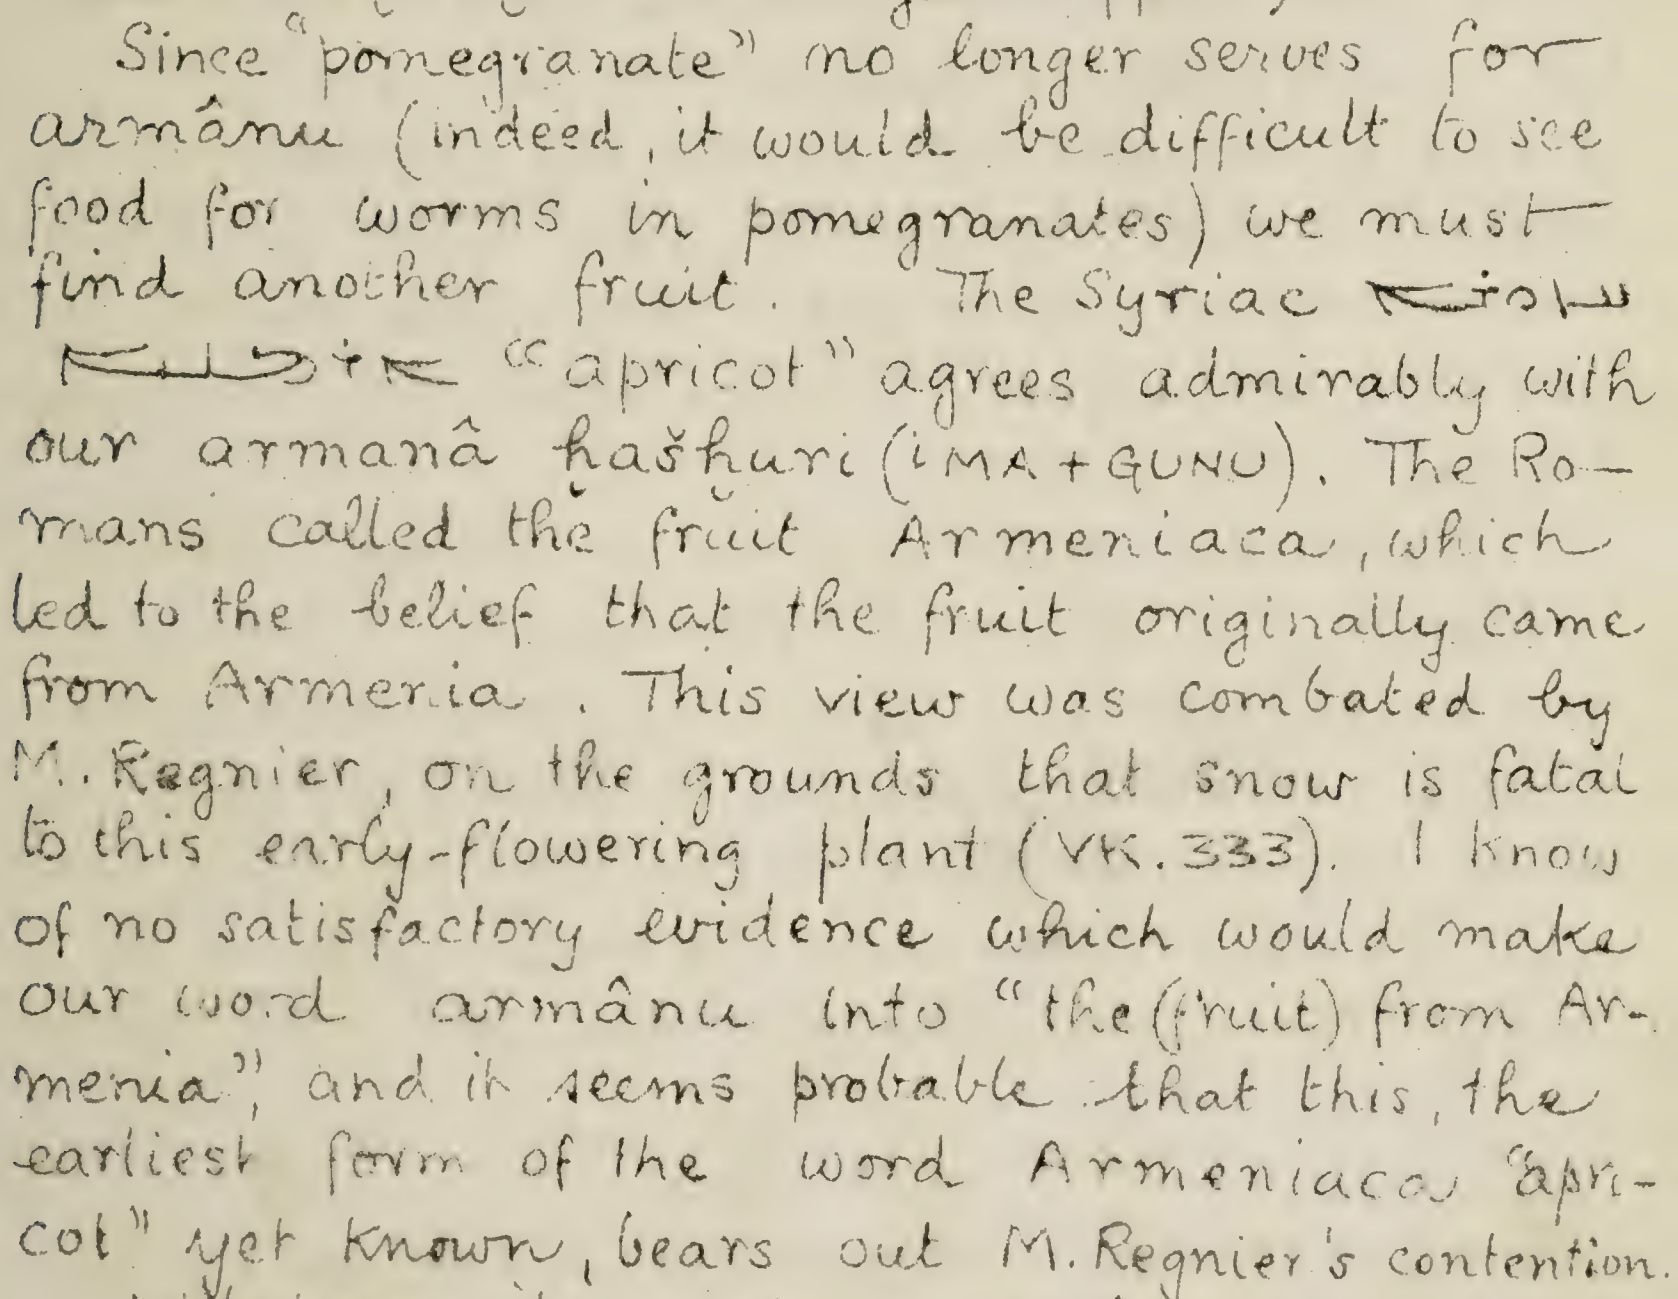 Since "pomegranate" no longer serves for
armânu (indeed, it would be difficult to see
food for worms in pomegranates) we must
find another fruit. The Syriac ܚܙܘܪܐ
ܐܪܡܢܝܐ "apricot" agrees admirably with
our armanâ ḫašḫuri (iMA + GUNU). The Ro-
mans called the fruit Armeniaca, which
led to the belief that the fruit originally came
from Armenia. This view was combated by
M. Regnier, on the grounds that snow is fatal
to this early-flowering plant (VK. 333). I know
of no satisfactory evidence which would make
our word armânu into "the (fruit) from Ar-
menia", and it seems probable that this, the
earliest form of the word Armeniaca "apri-
cot" yet known, bears out M. Regnier's contention.